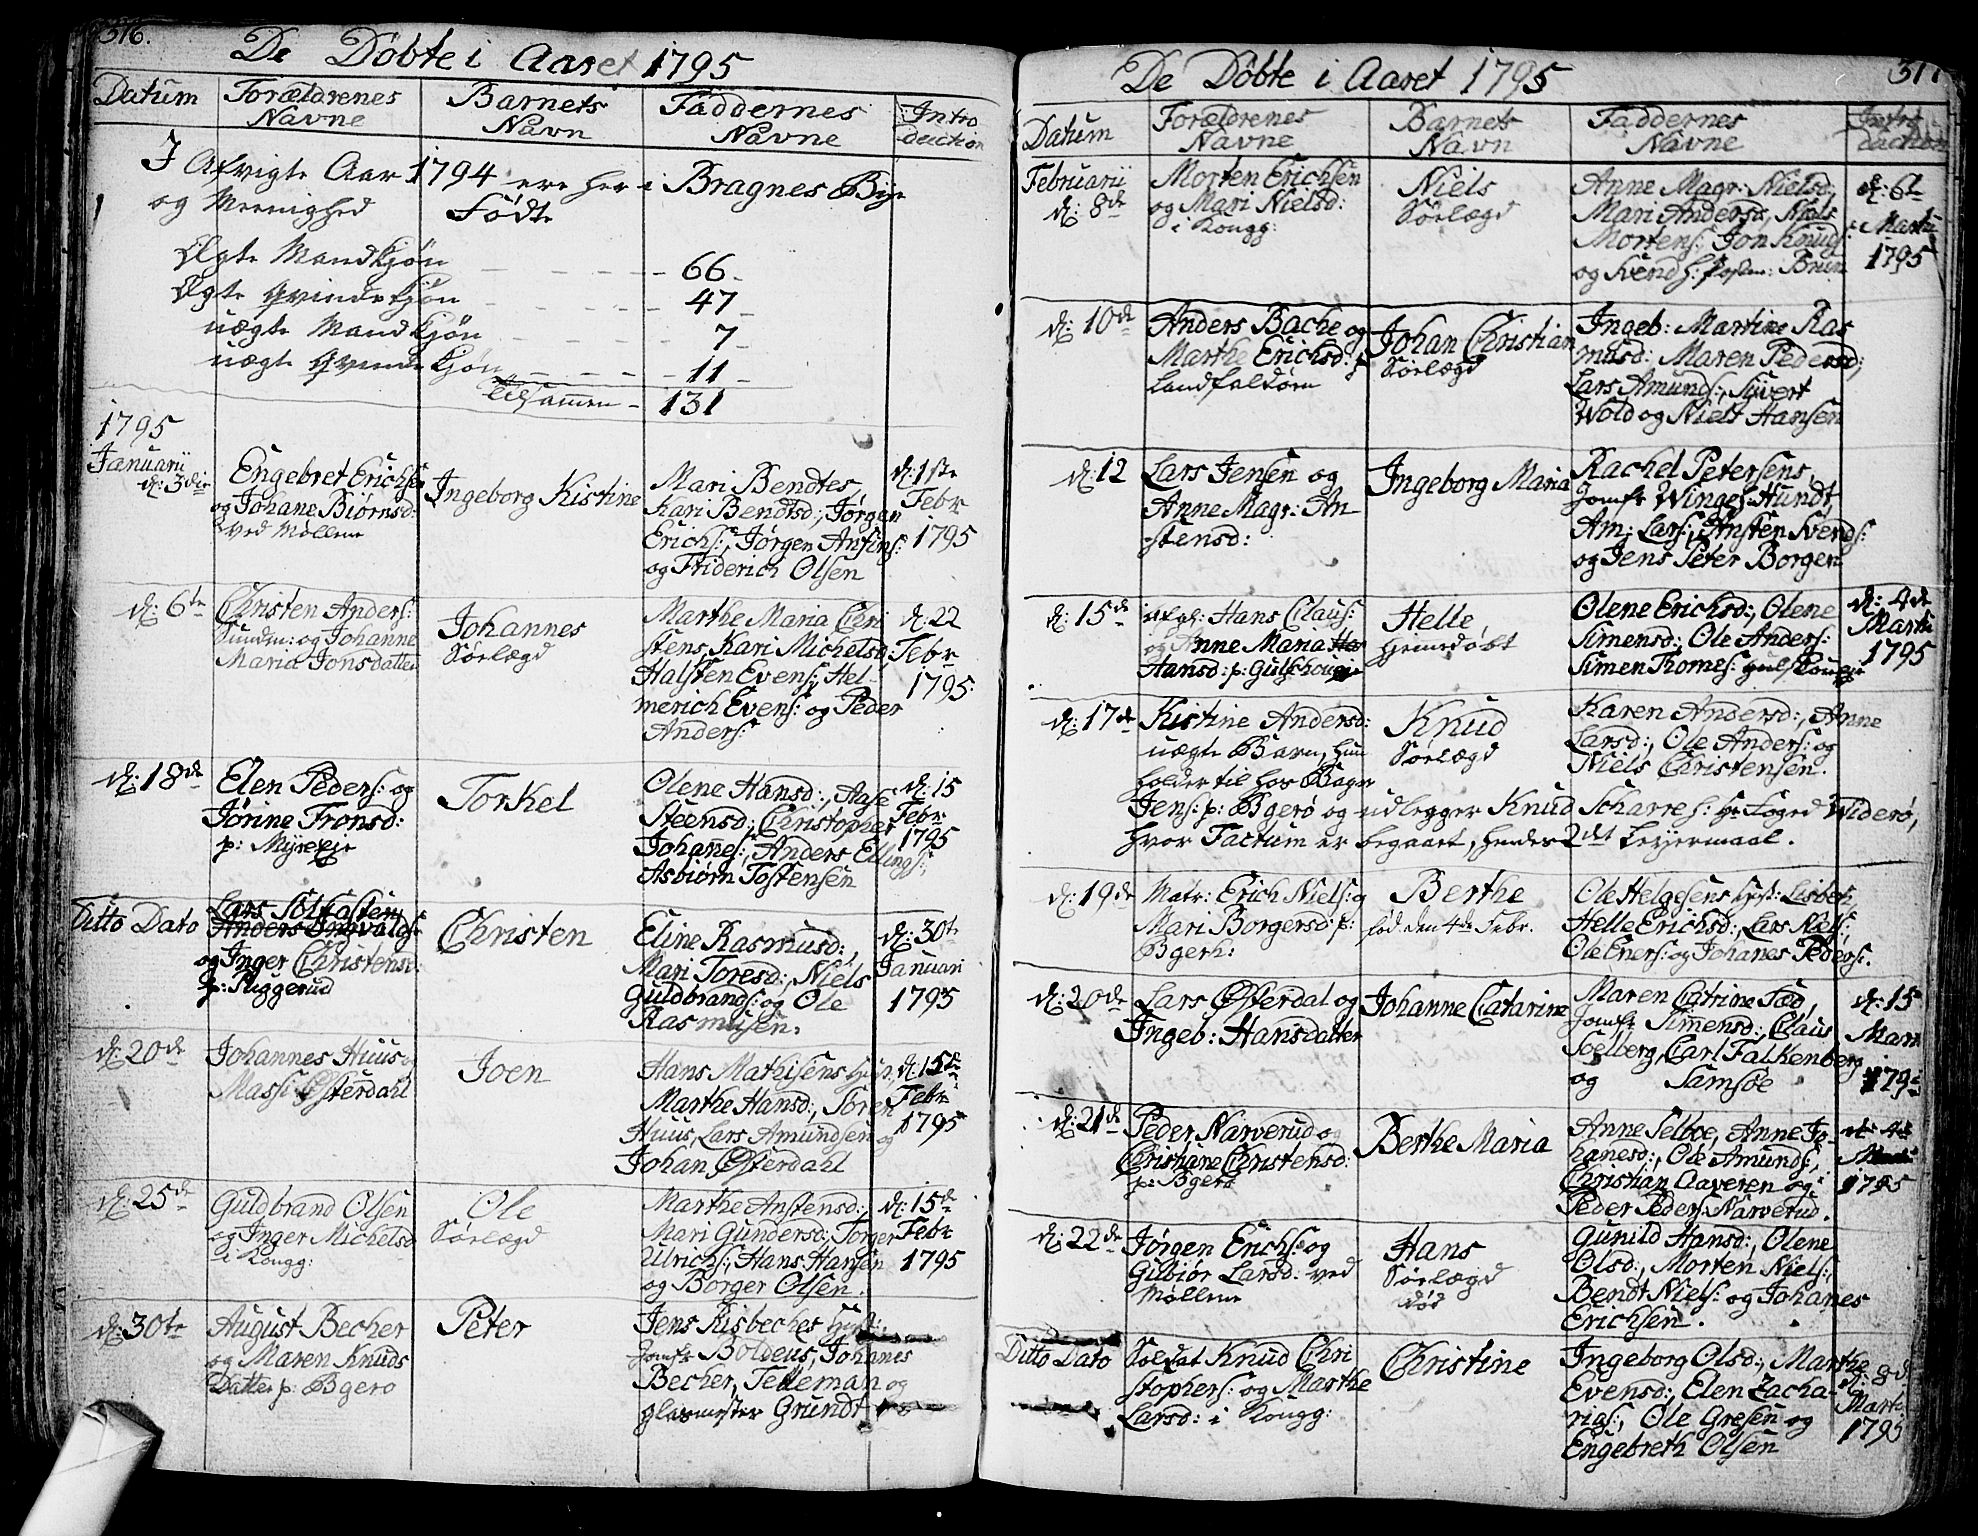 376.
De Döbte i Aaret 1795
Datum
Forældrenes
Navne
Barnets
Navn
Faddernes
Navne
Intro
duction
I Afvigte Aar 1794 ere her i Bragnes Bye
og Meenighed Födte
Ægte Mandkjön - 66 -
Ægte Qvindekjön - 47 -
uægte Mandkjön - 7 -
uægte Qvindekjön - 11 -
Tilsammen - 131
1795
Januarii
d: 3die
Engebret Erichs:
og Johane Biörnsd:
ved Möllene
Ingeborg Kistine
Mari Bendtes,
Kari Bendtsd:, Jörgen
Erichs:, Jörgen Anfins:
og Friderich Olsen
d: 1ste
Febr
1795
d: 6te
Christen Anders:
Sundm: og Johanne
Maria Jonsdatter
Johannes
Sörlægd
Marthe Maria Chri
stens, Kari Michelsd:
Halsten Evens:, Hel-
merich Evens: og Peder
Anders:
d: 22
Febr
1795.
d: 18de
Elen Peders: og
Jörine Tronsd:
p: Myreeje
Torkel
Olene Hansd:, Aase
Steensd:, Christopher
Johanes:, Anders Ellings:,
Asbiörn Tostensen
d: 15
Febr
1795
Ditto Dato
Lars Solfasten,
Anders Ingvalds:
og Inger Christensd:
p: Muggerud
Christen
Eline Rasmusd:,
Mari Toresd:, Niels
Guldbrands: og Ole
Rasmusen.
d: 30te
Januari
1795
d: 20de
Johannes Huus og
Massi Østerdahl
Joen
Hans Mathisens
Marthe Hansd:, Sören
Huus, Lars Amundsen og
Johan Østerdahl
d: 15de
Febr
1795
d: 25de
Guldbrand Olsen
og Inger Michelsd
i Kongg:
Ole
Sörlægd
Marthe Anstensd:,
Mari Gundersd:, Torger
Ulrichs:, Hans Hansen
og Borger Olsen.
d: 15de
Febr
1795
d: 30te
August Becher
og Maren Knuds
Datter p: Bgerö
Peter
Jens Risbeches
Jomfr Boldeus, Johanes
Becher, Telleman og
glasmester Grundt
De Döbte i Aaret 1795
377
Datum
Forældrenes
Navne
Barnets
Navn
Faddernes
Navne
Intro
duction
Februarii
d: 8de
Morten Erichsen
og Mari Nielsd:
i Kongg:
Niels
Sörlægd
Anne Magr: Nielsd,
Mari Andersd, Niels
Mortens:, Jon Knuds:
og Svend Brun
d: 6te
Martii
1795
d: 10de
Anders Bache og
Marthe Erichsd: p
Landfaldöen
Johan Christian
Sörlægd
Ingeb: Martine Ras
musd: Maren Pedersd;
Lars Amunds:, Syvert
Wold og Niels Hansen
d: 12
Lars Jensen og
Anne Magr: An
stensd:
Ingeborg Maria
Rachel Petersens,
Jomfr Winges, Hundt,
Am: Lars:, Ansten Svends:
og Jens Peter Borgen
d: 15de
afg: Hans Claus:
og Anne Maria
Hansd: p: Gulschougeie
Helle,
hjemdöbt
Olene Erichsd:, Olene
Simensd:, Ole Anders:
Simen Thomes: Gulskougeje
d: 4de
Martii
1795
d: 17de
Kistine Andersd:
uægte Barn, hun
holder til hos Bager
Jens: p: Bgerö og udlegger Knud Scharres: Widerö,
hvor Factum er begaaet, hendes 2det Leyermaal.
Knud
Sörlægd
Karen Andersd:, Anne
Larsd:, Ole Anders: og
Niels Christensen.
d: 19de
Matr: Erich Niels: og
Mari Borgersd p:
Bgerh:
Berthe
föd den 4de Febr.
Ole Helgesens Hust: Lisbeth,
Helle Erichsd:, Lars Niels:,
Ole Eners: og Johanes Peders:.
d: 20de
Lars Østerdal og
Ingeb: Hansdatter
Johanne Catarine
Maren Catrine Tæd,
Jomfr Simensd:, Claus
Soelberg, Carl Falkenberg
og Samsöe
d: 15
Marti
1795
d: 21de
Peder Narverud og
Christiane Christensd:
p: Bgerö
Berthe Maria
Anne Selboe, Anne Jo
hanesd:, Ole Amunds:,
Christian Aaveren og
Peder Peders: Narverud.
d: 4de
1795
d: 22de
Jörgen Erichs: og
Gubiör Larsd: ved
Möllene
Hans
Sörlægd
död
Gunild Hansd:, Olene
Olsd:, Morten Niels:,
Bendt Niels: og Johanes
Erichsen.
Ditto Dato
Soldat Knud Chri
stophers: og Marthe
Larsd: i Kongg:
Christine
Ingeborg Olsd:, Marthe
Evensd:, Elen Zacha-
rias:, Ole Gresen og
Engebreth Olsen
d: 8de
Marti
1795